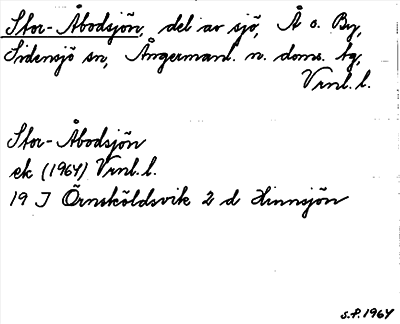 Stor-Åbodsjön, del av sjö, Å o. By,
Sidensjö sn, Ångermanl. n. doms. tg,
Vrnl. l.
Stor-Åbodsjön
ek (1964) Vrnl. l.
19 J Örnsköldsvik 2 d Hinnsjön
s.f. 1964